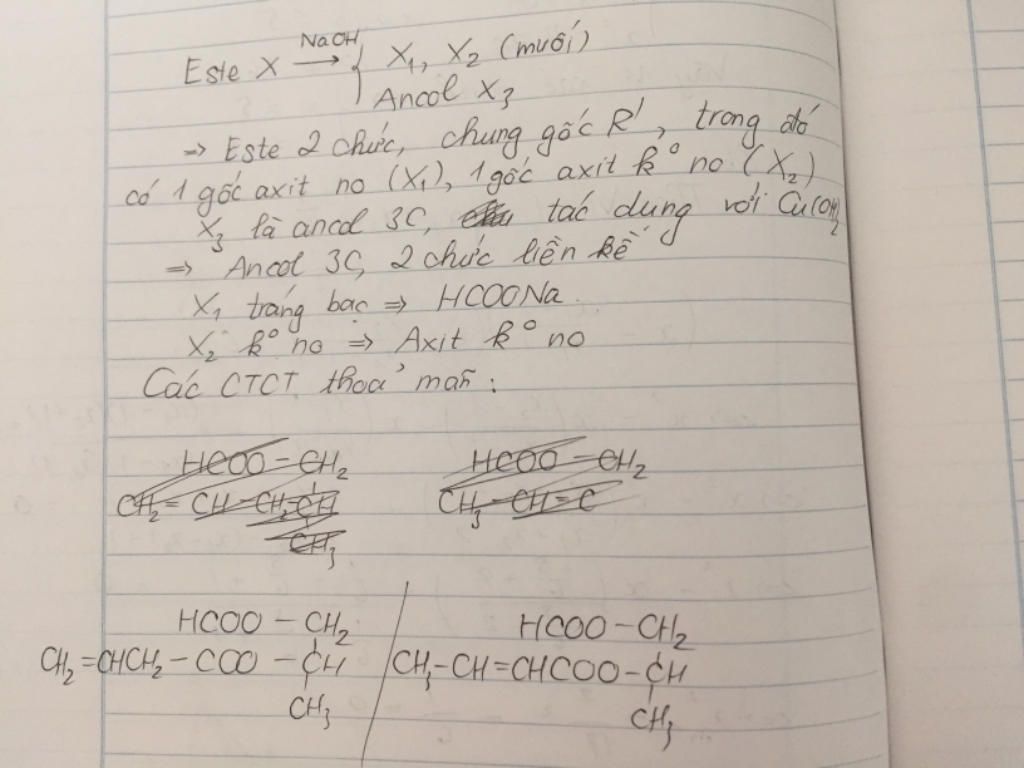 NaOH
Este X → { X₁, X₂ (muối)
Ancol X₃
⇒ Este 2 chức, chung gốc R', trong đó
có 1 gốc axit no (X₁), 1 gốc axit k° no (X₂)
X₃ là ancol 3C, tác dụng với Cu(OH)₂
⇒ Ancol 3C, 2 chức liền kề
X₁ tráng bạc ⇒ HCOONa.
X₂ k° no ⇒ Axit k° no
Các CTCT thoả mãn:
HCOO – CH₂ HCOO – CH₂
CH₂ = CH – CH₂ CH CH₃ – CH = C
CH₃
HCOO – CH₂ HCOO – CH₂
CH₂ = CHCH₂ – COO – CH CH₃ – CH = CHCOO – CH
CH₃ CH₃